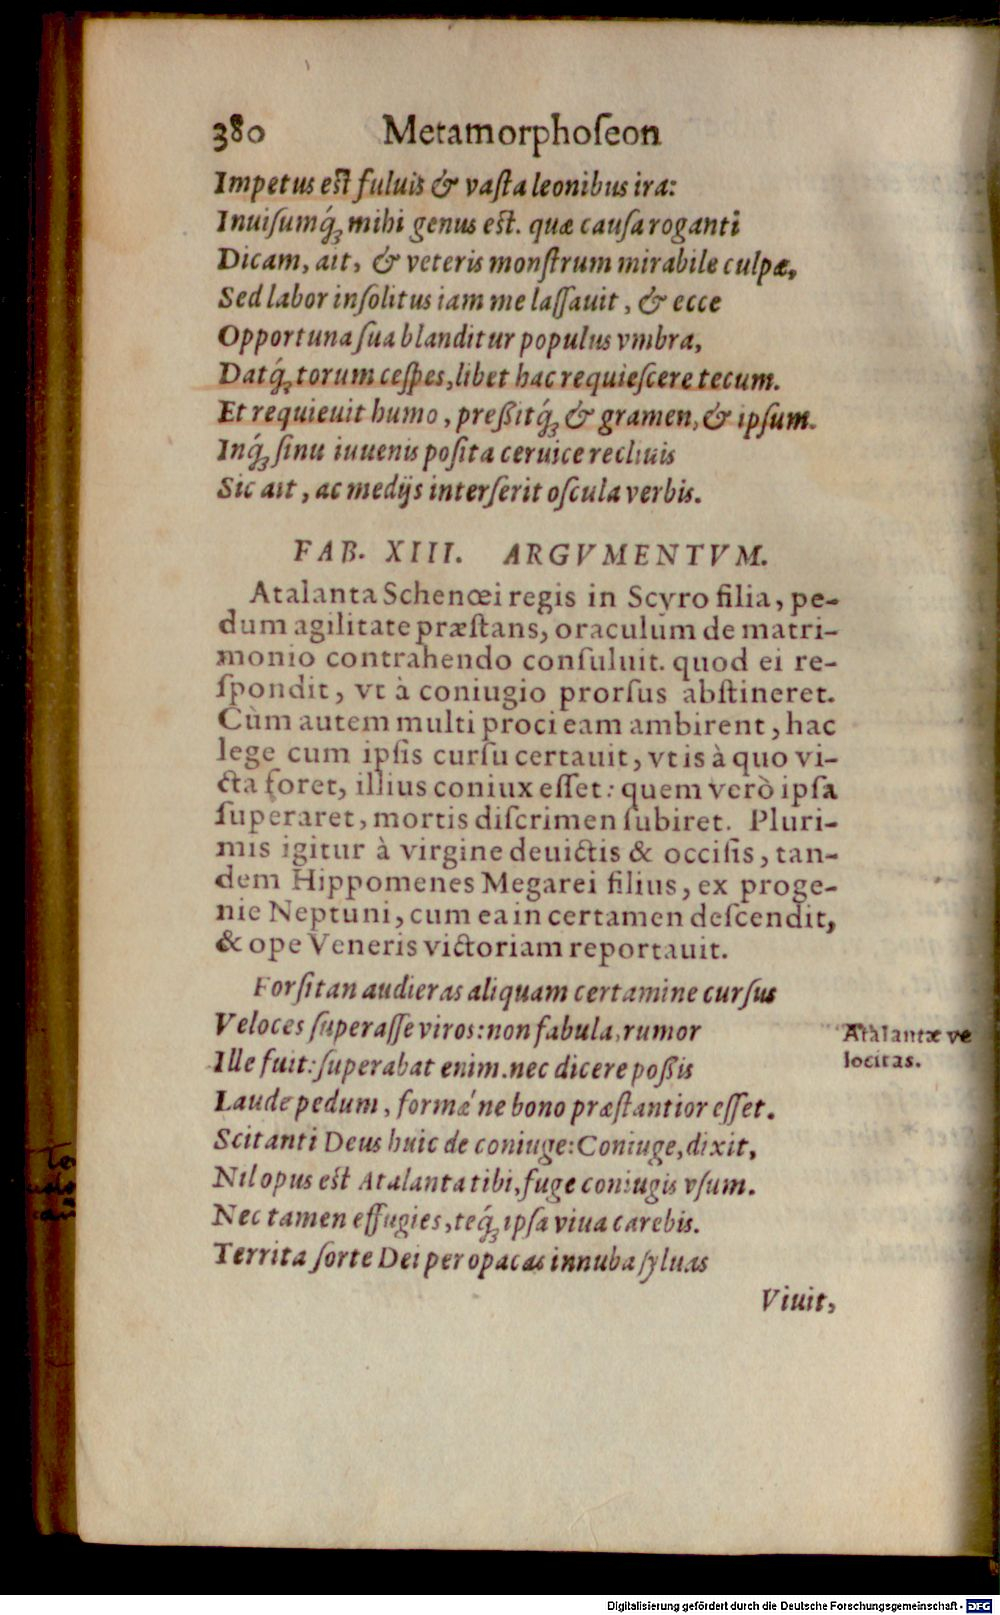 380 Metamorphoſeon
Impetus eſt fuluis & vaſta leonibus ira:
Inuiſumq́ꝫ mihi genus eſt. quæ cauſa roganti
Dicam, ait, & veteris monſtrum mirabile culpæ,
Sed labor inſolitus iam me laſſauit, & ecce
Opportuna ſua blanditur populus vmbra,
Datq́ꝫ torum ceſpes, libet hac requieſcere tecum.
Et requieuit humo, preßitq́ꝫ & gramen, & ipſum.
Inq́ꝫ ſinu iuuenis poſita ceruice recliuis
Sic ait, ac medijs interſerit oſcula verbis.
FAB. XIII. ARGVMENTVM.
Atalanta Schenœi regis in Scyro filia, pe-
dum agilitate præſtans, oraculum de matri-
monio contrahendo conſuluit. quod ei re-
ſpondit, vt à coniugio prorſus abſtineret.
Cùm autem multi proci eam ambirent, hac
lege cum ipſis curſu certauit, vt is à quo vi-
cta foret, illius coniux eſſet: quem verò ipſa
ſuperaret, mortis diſcrimen ſubiret. Pluri-
mis igitur à virgine deuictis & occiſis, tan-
dem Hippomenes Megarei filius, ex proge-
nie Neptuni, cum ea in certamen deſcendit,
& ope Veneris victoriam reportauit.
Forſitan audieras aliquam certamine curſus
Veloces ſuperaſſe viros: non fabula, rumor
Ille fuit: ſuperabat enim. nec dicere poßis
Laude pedum, formǽ ne bono præſtantior eſſet.
Scitanti Deus huic de coniuge: Coniuge, dixit,
Nil opus eſt Atalanta tibi, fuge coniugis vſum.
Nec tamen effugies, teq́ꝫ ipſa viua carebis.
Territa ſorte Dei per opacas innuba ſyluas
Viuit,
Atalantæ ve
locitas.
Digitalisierung gefördert durch die Deutsche Forschungsgemeinschaft - DFG